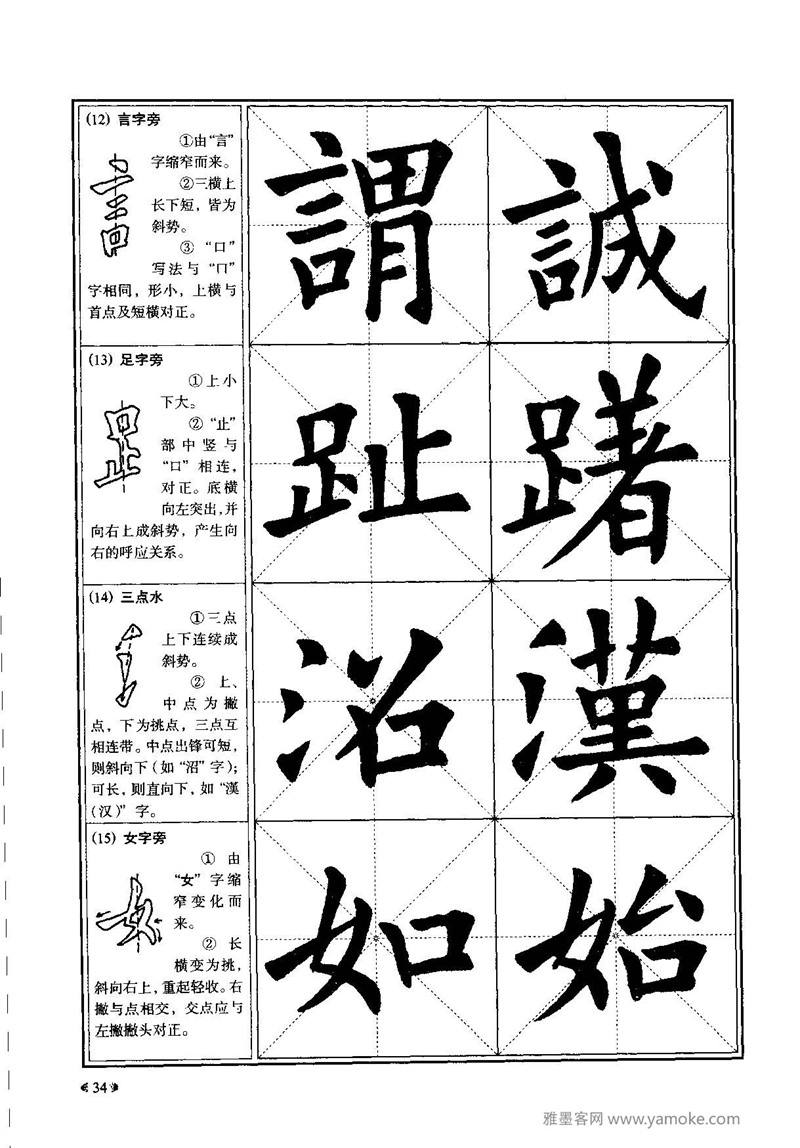 (12) 言字旁
①由“言”
字缩窄而来。
②三横上
长下短，皆为
斜势。
③ “口”
写法与“口”
字相同，形小，上横与
首点及短横对正。
謂 誠
(13) 足字旁
①上小
下大。
② “止”
部中竖与
“口”相连，
对正。底横
向左突出，并
向右上成斜势，产生向
右的呼应关系。
趾 躇
(14) 三点水
①三点
上下连续成
斜势。
② 上、
中点为撇
点，下为挑点，三点互
相连带。中点出锋可短，
则斜向下（如“沼”字）；
可长，则直向下，如“漢
（汉）”字。
沼 漢
(15) 女字旁
① 由
“女”字缩
窄变化而
来。
② 长
横变为挑，
斜向右上，重起轻收。右
撇与点相交，交点应与
左撇撇头对正。
如 始
34
雅墨客网 www.yamoke.com